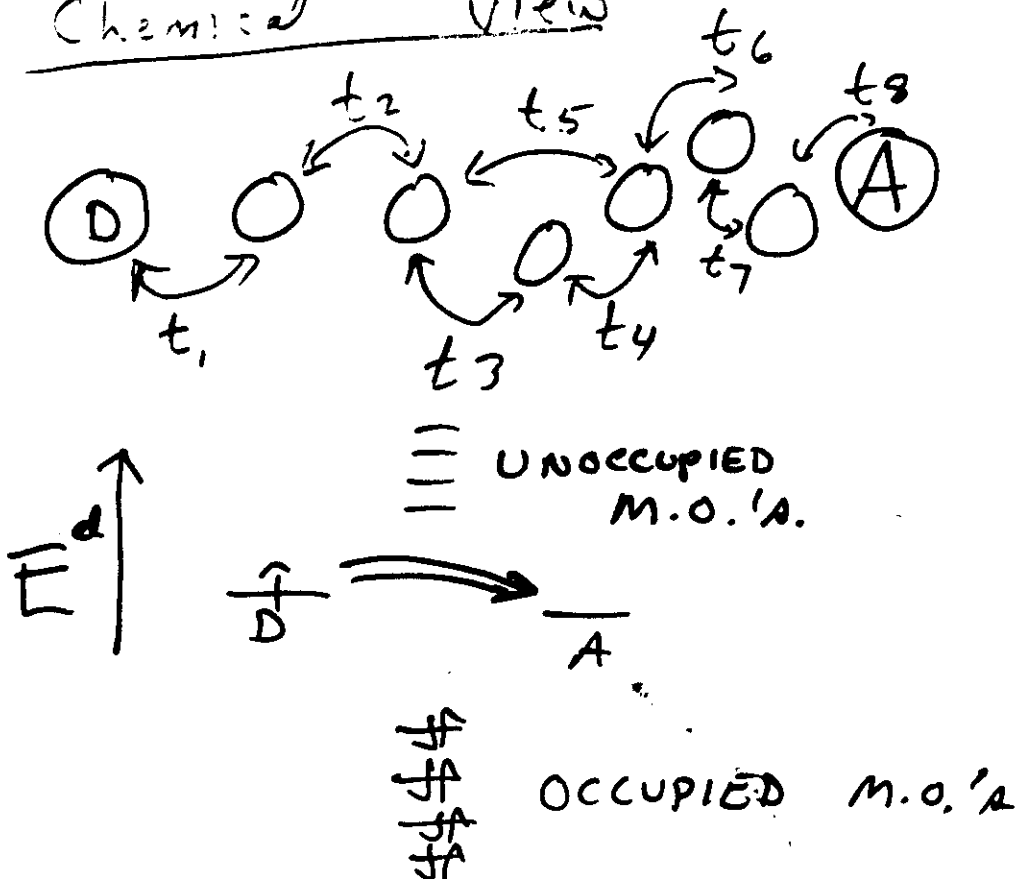 Chemical View
t6
t2 t5 t8
D A
t7
t1 t4
t3
UNOCCUPIED
M.O.'s.
E d
D
A
OCCUPIED M.O.'s